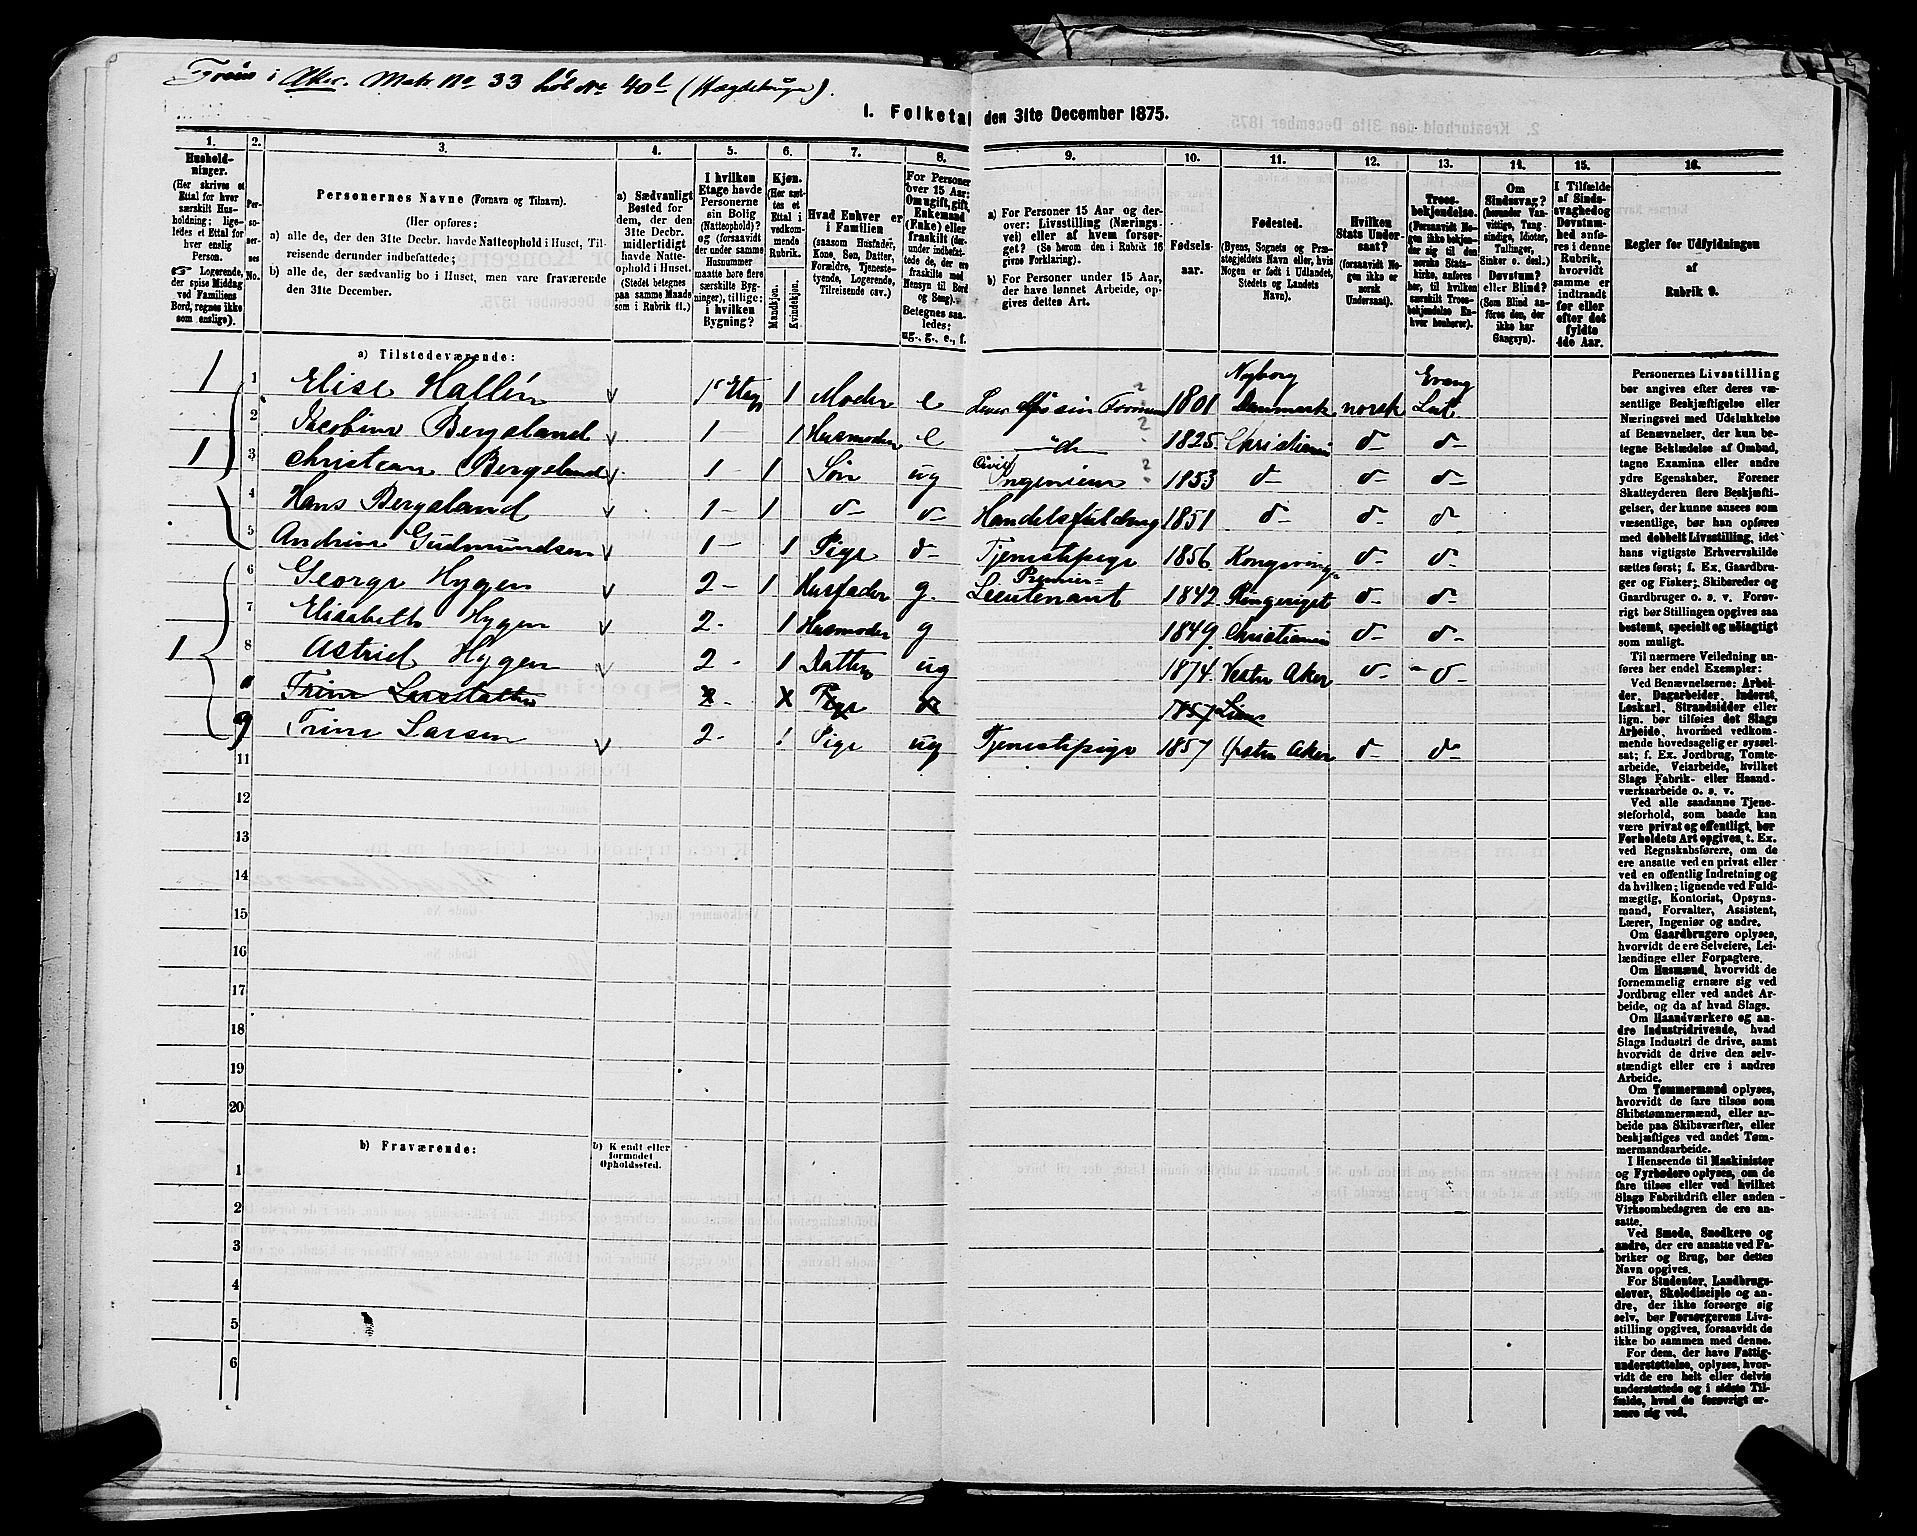 Frøen i Aker. Matr No 33 Løb No 40b (Hægdebruget).
1. Folketal den 31te December 1875.
1. 2. 3. 4. 5. 6. 7. 8. 9. 10. 11. 12. 13. 14. 15. 16.
Husholdninger.
(Her skrives et Ettal for hver særskilt Husholdning; ligeledes et Ettal for hver enslig Person.
Logerende, der spise Middag ved Familiens Bord, regnes ikke som enslige).
Personernes No.
Personernes Navne (Fornavn og Tilnavn).
(Her opføres:
a) alle de, der den 31te Decbr. havde Natteophold i Huset, Tilreisende derunder indbefattede;
b) alle de, der sædvanlig bo i Huset, men vare fraværende den 31te December.
a) Sædvanligt Bosted for dem, der den 31te Decbr. midlertidigt havde Natteophold i Huset. (Stedet betegnes paa samme Maade som i Rubrik 11.)
I hvilken Etage havde Personerne sin Bolig (Natteophold)? og (forsaavidt der under samme Husnummer maatte høre flere særskilte Bygninger), tillige: i hvilken Bygning?
Kjøn. (Her sættes et Ettal i vedkommende Rubrik.
Mandkjøn. Kvindekjøn.
Hvad Enhver er i Familien (saasom Husfader, Kone, Søn, Datter, Forældre, Tjenestetyende, Logerende, Tilreisende o.s.v.)
For Personer over 15 Aar: Om ugift, gift, Enkemand (Enke) eller fraskilt (derunder indbefattede de, der ere fraskilte med Hensyn til Bord og Seng). Betegnes saaledes: ug., g., e., f.
a) For Personer 15 Aar og derover: Livsstilling (Næringsvei) eller af hvem forsørget? (Se herom den i Rubrik 16 givne Forklaring).
b) For Personer under 15 Aar, der have lønnet Arbeide, opgives dettes Art.
Fødselsaar.
Fødested. (Byens, Sognets og Præstegjeldets Navn eller, hvis Nogen er født i Udlandet, Stedets og Landets Navn).
Hvilken Stats Undersaat? (forsaavidt Nogen ikke er norsk Undersaat).
Troesbekjendelse. (Forsaavidt Nogen ikke bekjender sig til den norske Statskirke, anføres her, til hvilken særskilt Troesbekjendelse Enhver henhører).
Om Sindssvag? (herunder Vanvittige, Tungsindige, Idioter, Tullinger, Sinker o. desl.) Døvstum? eller Blind? (Som Blind anføres den, der ikke har Gangsyn).
I Tilfælde af Sindssvaghed og Døvstumhed anføres i denne Rubrik, hvorvidt samme er indtraadt før eller efter det fyldte 4de Aar.
Regler for Udfyldningen af Rubrik 9.
a) Tilstedeværende:
1 1 Elise Hallén 1ste Etage 1 Moder e Lever af sin Formue 1801 Nyborg Danmark norsk Evang Luth
2 Jacobine Bergsland 1 — 1 Husmoder e do 1825 Christiania d— d—
1 3 Christian Bergsland 1 — 1 Søn ug Civil Ingenieur 1853 d— d— d—
4 Hans Bergsland 1 — 1 d— d— Handelsfuldmg 1851 d— d— d—
5 Andrine Gudmundsen 1 — 1 Pige d— Tjenestepige 1856 Kongsvinger d— d—
6 George Hygen 2 — 1 Husfader g. Premier= Lieutenant 1842 Ringeriget d— d—
7 Elisabeth Hygen 2 — 1 Husmoder g 1849 Christiania d— d—
1 8 Astrid Hygen 2 — 1 Datter ug 1874 Vestre Aker d— d—
Trine Larsdatter 2 — Pige 1857 Lier
9 Trine Larsen 2 — 1 Pige ug Tjenestepige 1857 Østre Aker d— d—
11
12
13
14
15
16
17
18
19
20
b) Fraværende: b) Kjendt eller formodet Opholdssted.
1
2
3
4
5
6
Personernes Livsstilling bør angives efter deres væsentlige Beskjæftigelse eller Næringsvei med Udelukkelse af Benævnelser, der kun betegne Beklædelse af Ombud, tagne Examina eller andre ydre Egenskaber. Forener Skatteyderen flere Beskjæftigelser, der kunne ansees som væsentlige, bør han opføres med dobbelt Livsstilling, idet hans vigtigste Erhvervskilde sættes først; f. Ex. Gaardbruger og Fisker; Skibsreder og Gaardbruger o. s. v. Forøvrigt bør Stillingen opgives saa bestemt, specielt og nøiagtigt som muligt.
Til nærmere Veiledning anføres her endel Exempler:
Ved Benævnelserne: Arbeider, Dagarbeider, Inderst, Løskarl, Strandsidder eller lign. bør tilføies det Slags Arbeide, hvormed vedkommende hovedsagelig er sysselsat; f. Ex. Jordbrug, Tomtearbeide, Veiarbeide, hvilket Slags Fabrik- eller Haandværksarbeide o. s. v.
Ved alle saadanne Tjenesteforhold, som baade kan være privat og offentligt, bør Forholdets Art opgives, t. Ex. ved Regnskabsførere, om de ere ansatte ved en privat eller ved en offentlig Indretning og da hvilken; lignende ved Fuldmægtig, Kontorist, Opsynsmand, Forvalter, Assistent, Lærer, Ingeniør og andre.
Om Gaardbrugere oplyses, hvorvidt de ere Selveiere, Leilændinge eller Forpagtere.
Om Husmænd, hvorvidt de fornemmelig ernære sig ved Jordbrug eller ved andet Arbeide, og da af hvad Slags.
Om Haandværkere og andre Industridrivende, hvad Slags Industri de drive, samt hvorvidt de drive den selvstændigt eller ere i andres Arbeide.
Om Tømmermænd oplyses, hvorvidt de fare tilsøs som Skibstømmermænd, eller arbeide paa Skibsværfter, eller beskjæftiges ved andet Tømmermandsarbeide.
I Henseende til Maskinister og Fyrbødere oplyses, om de fare tilsøs eller ved hvilket Slags Fabrikdrift eller anden Virksomhedsgren de ere ansatte.
Ved Smede, Snedkere og andre, der ere ansatte ved Fabriker og Brug, bør dettes Navn opgives.
For Studenter, Landbrugselever, Skoledisciple og andre, der ikke forsørge sig selv, bør Forsørgerens Livsstilling opgives, forsaavidt de ikke bo sammen med denne.
For dem, der have Fattigunderstøttelse, oplyses, hvorvidt de ere helt eller delvis understøttede og i sidste Tilfælde, hvad de forøvrigt ernære sig ved.